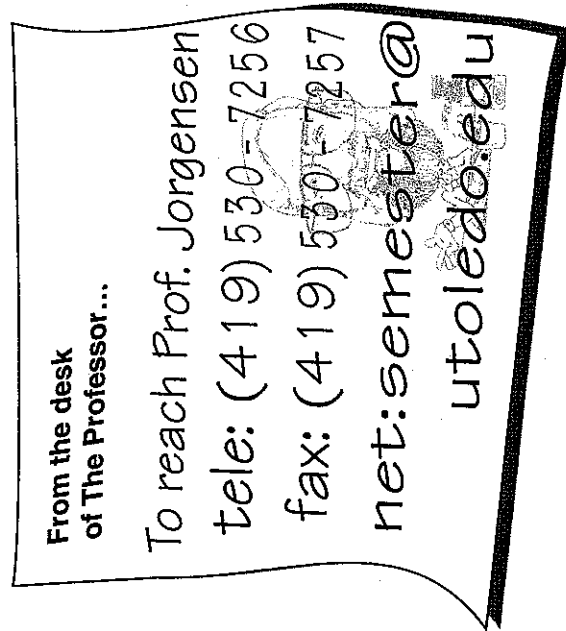 From the desk
of The Professor...
To reach Prof. Jorgensen
tele: (419) 530-7256
fax: (419) 530-7257
net:semester@
utoledo.edu